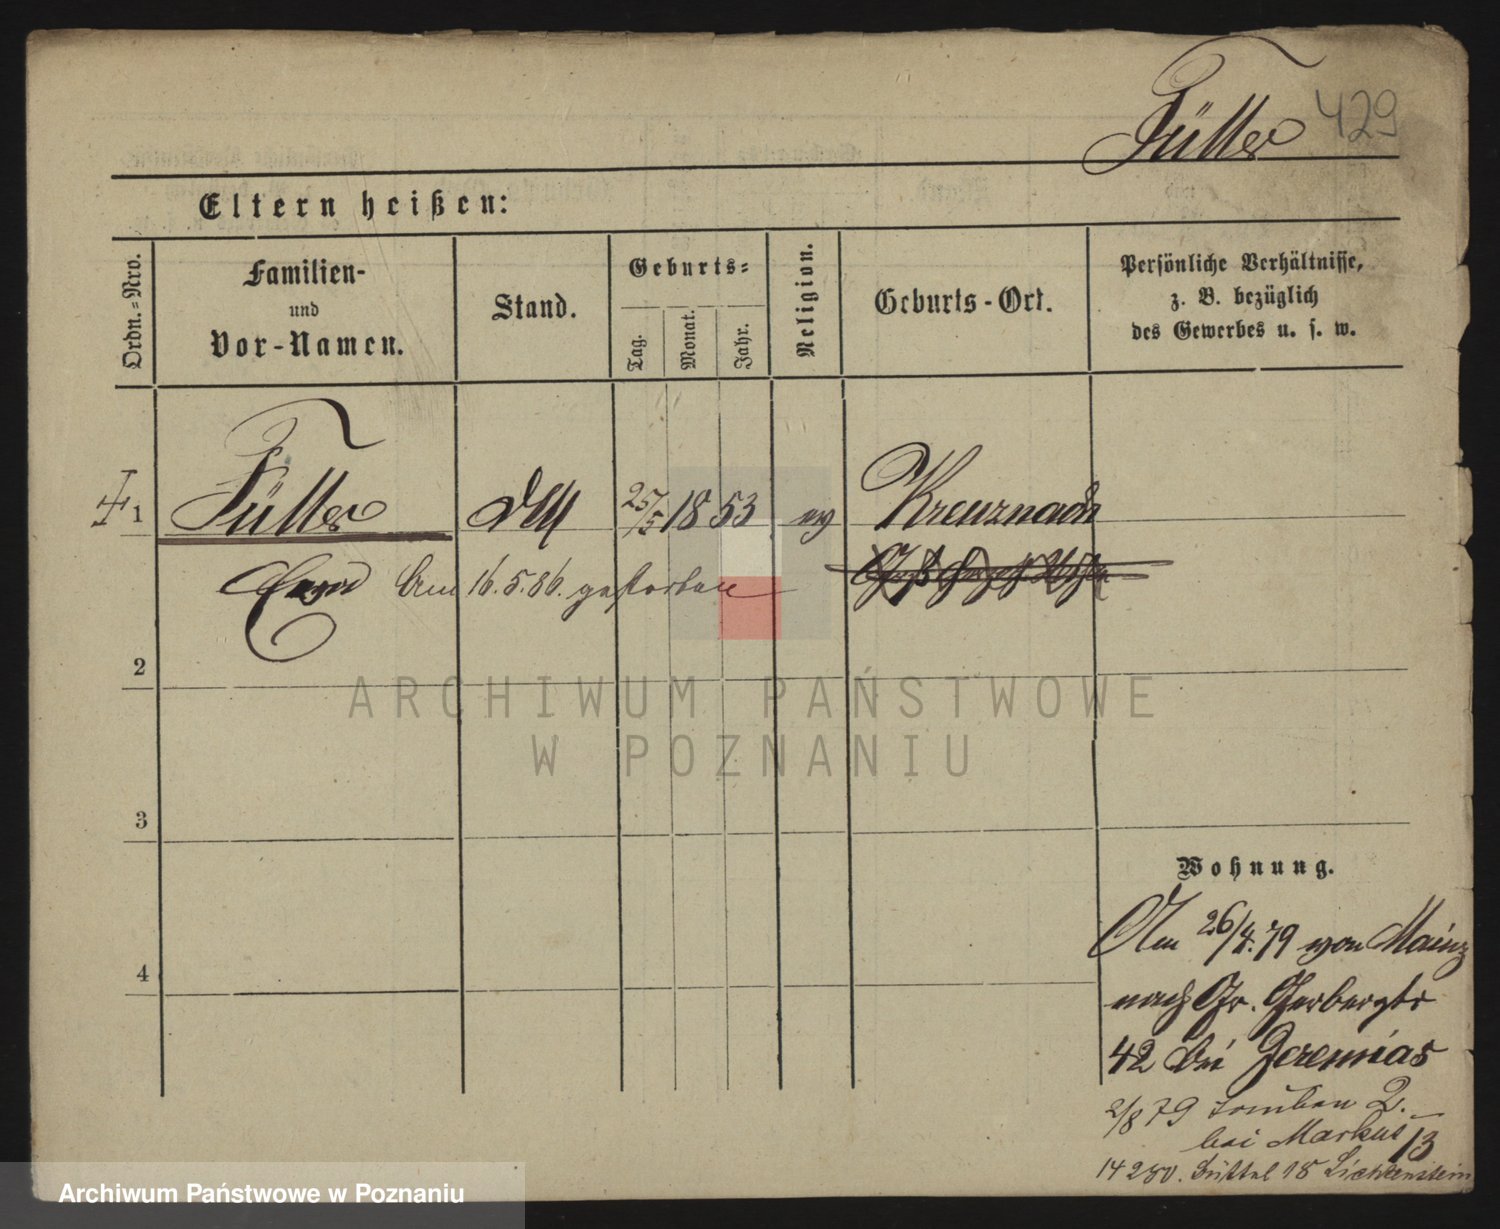 Füller 429
Eltern heißen:
Ordn.-Nro.
Familien-
und
Vor-Namen.
Stand.
Geburts-
Tag.
Monat.
Jahr.
Religion.
Geburts-Ort.
Persönliche Verhältnisse,
z. B. bezüglich
des Gewerbes u. s. w.
1 25/5 1853 ev Kreuznach
Am 16.5.86. gestorben
2
ARCHIWUM PAŃSTWOWE
W POZNANIU
3
Wohnung.
4
Am 26/4.79 von Mainz
nach Gr. Gerberstr
42 bei Jeremias
2/8 79 2.
bei Markus 13
14 280. Büttel 18 Lichtenstein
Archiwum Państwowe w Poznaniu